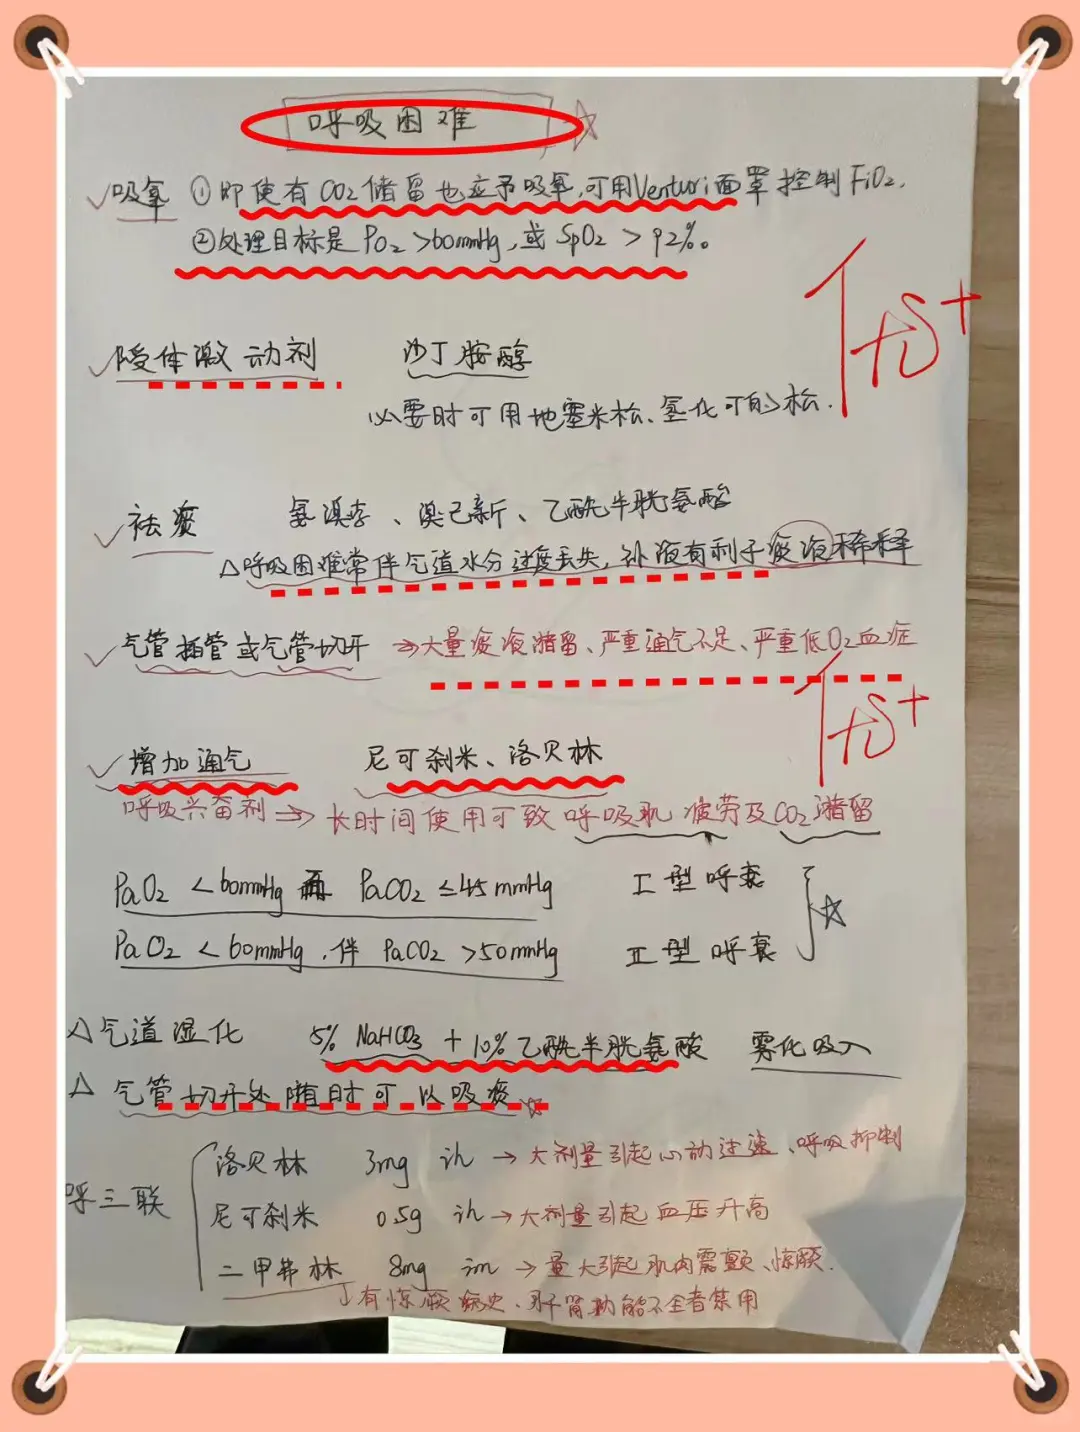 呼吸困难
吸氧 ①即使有CO2储留也应予吸氧,可用Venturi面罩控制FiO2.
②处理目标是PO2>60mmHg,或SpO2>92%。
受体激动剂 沙丁胺醇
必要时可用地塞米松、氢化可的松.
祛痰 氨溴索、溴己新、乙酰半胱氨酸
△呼吸困难常伴气道水分过度丢失,补液有利于痰液稀释
气管插管或气管切开 →大量痰液潴留、严重通气不足、严重低O2血症
增加通气 尼可刹米、洛贝林
呼吸兴奋剂⇒长时间使用可致呼吸肌疲劳及CO2潴留
PaO2<60mmHg 而 PaCO2≤45mmHg I型呼衰
PaO2<60mmHg.伴 PaCO2>50mmHg II型呼衰
△气道湿化 5% NaHCO3+10%乙酰半胱氨酸 雾化吸入
△气管切开处随时可以吸痰
呼三联
洛贝林 3mg ih →大剂量引起心动过速、呼吸抑制
尼可刹米 0.5g ih→大剂量引起血压升高
二甲弗林 8mg im →量大引起肌肉震颤、惊厥.
↓有惊厥病史、肝肾功能不全者禁用